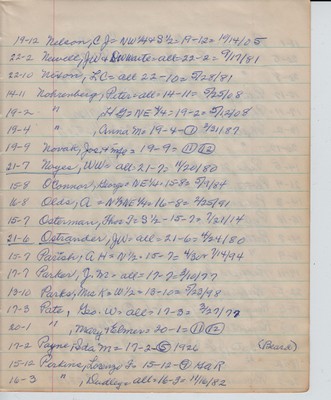 19-12 Nelson, C J = NW¼ & S½ = 19-12 = 19/14/05
22-2 Newell, JW & = all = 22-2 = 9/17/81
22-10 Nixon, LC = all 22-10 = 5/28/81
14-11 Nohrenberg, Peter = all = 14-11 = 5/25/08
19-2 " , = NE¼ = 19-2 = 5/12/08
19-4 " , Anna M = 19-4 - (11) 3/21/87
19-9 Novak, = 19-9 = (11) (12)
21-7 Noyes, WW = all 21-7 = 11/20/80
15-8 O'Connor, George = NE¼ = 15-8 = 5/7/87
16-8 Olds, A = = 16-8 = 2/25/91
15-7 Osterman, Thos F = S½ - 15-7 = 7/31/14
21-6 Ostrander, JW = all = 21-6 = 4/24/80
15-7 Partsh, A H = N½ = 15-7 = 4/30 & 7/14/94
17-7 Parker, J. W = all = 17-7 = 3/10/77
13-10 Parks, Mrs K = W½ = 13-10 = 5/22/98
17-3 Pate, Geo. W = all = 17-3 = 3/27/77
20-1 " , Mary & Elmer = 20-1 = (11) (12)
17-2 Payne, Ida M = 17-2 - (5) 1926 (Beard)
15-12 Perkins, Lorenzo F = 15-12 - (9) GAR
16-3 " , Dudley = all = 16-3 = 11/16/82